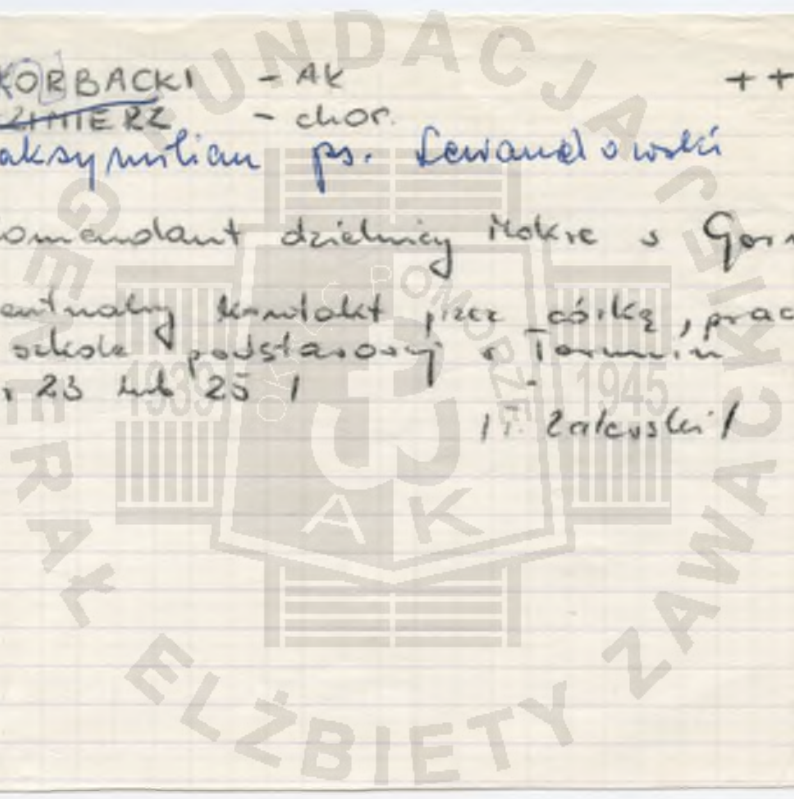 KORBACKI - AK ++
ZIMIERZ - chor.
aksymilian ps. Lewandowski
omendant dzielnicy Mokre s Gor
entualny kontakt przez córkę, prac
szkole podstawowej w Toruniu
23 lub 25 /
/ T. Zalewski /
FUNDACJA
GENERAŁ ELŻBIETY ZAWACKIEJ
OKRĘG POMORZE
1939 1945
AK